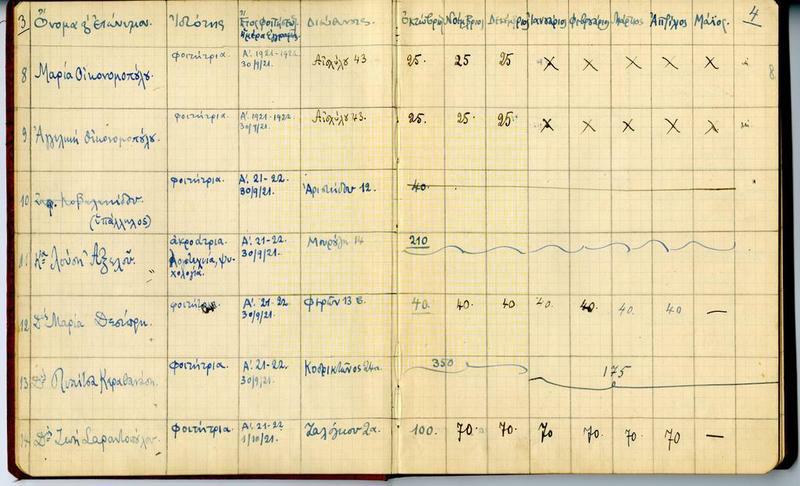 3. Ὄνομα & Ἐπώνυμον. Ἰδιότης Ἔτος φοιτήσεως ἡμέρα ἐγγραφῆς Διεύθυνσις. Ὀκτώβριος Νοέμβριος Δεκέμβριος Ἰανουάριος Φεβρουάριος Μάρτιος Ἀπρίλιος Μάϊος. 4
8 Μαρία Οἰκονομοπούλου. φοιτήτρια Α'. 1921-1922 30/9/21. Αἰσχύλου 43 25. 25 25 X X X X X 8
9 Ἀγγελικὴ Οἰκονομοπούλου. φοιτήτρια. Α'. 1921-1922 30/9/21. Αἰσχύλου 43. 25. 25. 25. X X X X X
10 φοιτήτρια. Α'. 21-22. 30/9/21. Ἀριστείδου 12. 40.
(ὑπάλληλος)
11 Κα Λούση Ἀξελοῦ. ἀκροάτρια. Λογοτεχνία, ψυχολογία. Α'. 21-22. 30/9/21. 14 210
12 Δὶς Μαρία φοιτήτρια. Α'. 21-22 30/9/21. 13 40. 40. 40 40. 40. 40. 40 —
13 Δὶς φοιτήτρια. Α'. 21-22. 30/9/21. 24α. 350 175
14 Δὶς Ζωὴ Σαραντοπούλου. φοιτήτρια. Α'. 21-22 1/10/21. Ζαλόγγου 2α. 100. 70. 70. 70 70. 70. 70 —